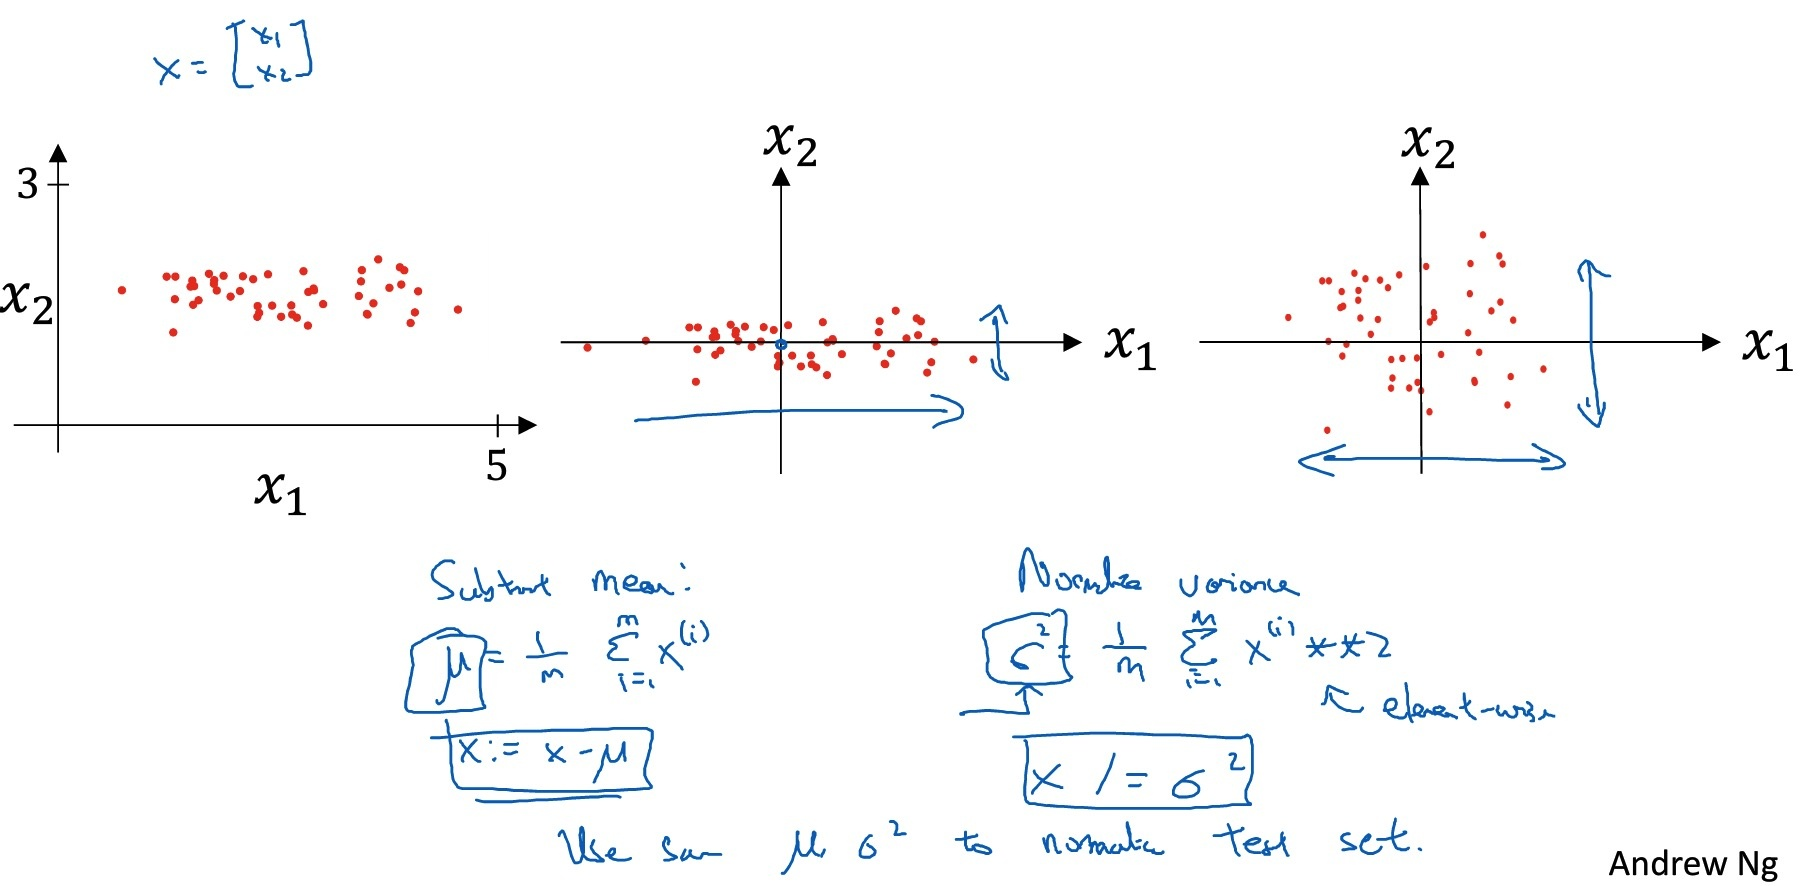 x = [x1
x2]
3
x2
5
x1
x2
x1
x2
x1
Subtract mean:
μ = 1/m Σ_{i=1}^{m} x^(i)
x := x - μ
Normalize variance
σ² = 1/m Σ_{i=1}^{m} x^(i) **2
element-wise
x /= σ²
Use same μ, σ² to normalize test set.
Andrew Ng